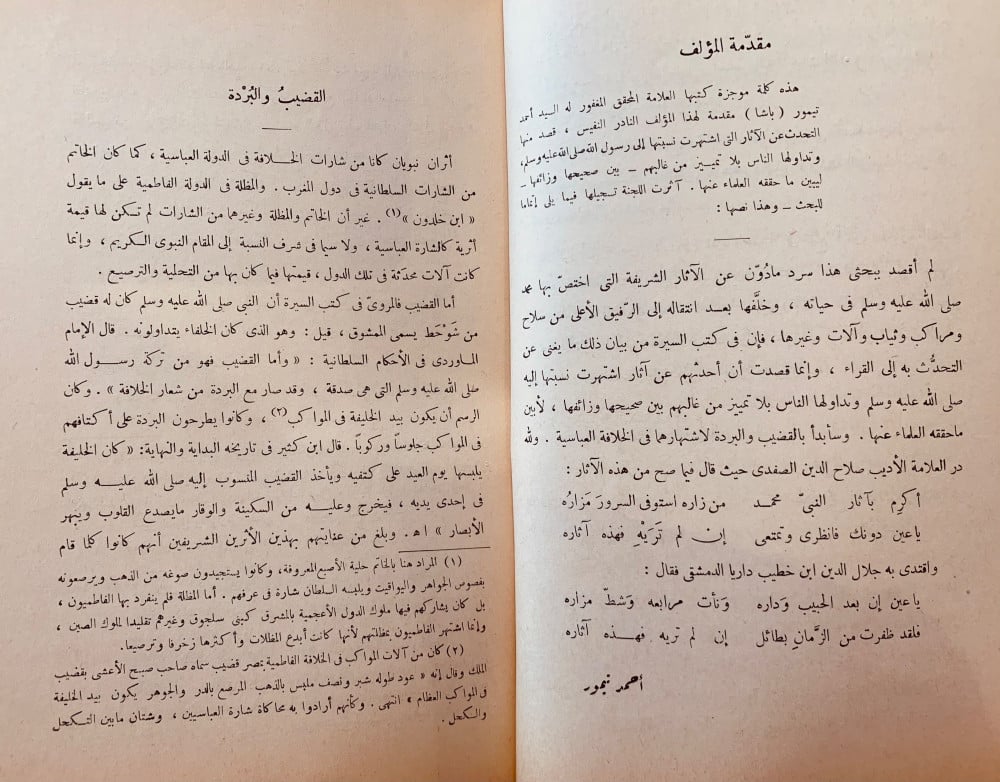 مقدّمة المؤلف
هذه كلمة موجزة كتبها العلامة المحقق المغفور له السيد أحمد
تيمور (باشا) مقدمة لهذا المؤلف النادر النفيس ، قصد منها
التحدث عن الآثار التى اشتهرت نسبتها إلى رسول الله صلى الله عليه وسلم،
وتداولها الناس بلا تمييز من غالبهم ــ بين صحيحها وزائفها ــ
ليبين ما حققه العلماء عنها . آثرت اللجنة تسجيلها فيما يلى إتماما
للبحث ــ وهذا نصها :
لم أقصد ببحثى هذا سرد مادُوّن عن الآثار الشريفة التى اختصّ بها محمد
صلى الله عليه وسلم فى حياته ، وخلَّفها بعد انتقاله إلى الرّفيق الأعلى من سلاح
ومراكب وثياب وآلات وغيرها، فإن فى كتب السيرة من بيان ذلك ما يغنى عن
التحدُّث به إلى القراء ، وإنما قصدت أن أحدثهم عن آثار اشتهرت نسبتها إليه
صلى الله عليه وسلم وتداولها الناس بلا تمييز من غالبهم بين صحيحها وزائفها ، لأبين
ماحققه العلماء عنها . وسأبدأ بالقضيب والبردة لاشتهارهما فى الخلافة العباسية . ولله
در العلامة الأديب صلاح الدين الصفدى حيث قال فيما صح من هذه الآثار :
أكرِم بآثار النبىّ محمد من زاره استوفى السرورَ مَزارُه
ياعين دونك فانظرى وتمتعى إن لم تَرَيْهِ فهذه آثاره
واقتدى به جلال الدين ابن خطيب داريا الدمشقى فقال :
ياعين إن بعد الحبيب وَداره وَنأت مرابعه وَشطّ مزاره
فلقد ظفرت من الزّمانِ بطائل إن لم تريه فهذه آثاره
أحمد تيمور
القضيبُ والبُرْدة
أثران نبويان كانا من شارات الخلافة فى الدولة العباسية ، كما كان الخاتم
من الشارات السلطانية فى دول المغرب . والمظلة فى الدولة الفاطمية على ما يقول
« ابن خلدون »(١) . غير أن الخاتم والمظلة وغيرهما من الشارات لم تكن لها قيمة
أثرية كالشارة العباسية ، ولا سيما فى شرف النسبة إلى المقام النبوى الكريم ، وإنما
كانت آلات محدَثة فى تلك الدول ، قيمتها فيما كان بها من التحلية والترصيع .
أما القضيب فالمروىّ فى كتب السيرة أن النبى صلى الله عليه وسلم كان له قضيب
من شَوْحَط يسمى الممشوق ، قيل : وهو الذى كان الخلفاء يتداولونه . قال الإمام
الماوردى فى الأحكام السلطانية : « وأما القضيب فهو من تركة رسول الله
صلى الله عليه وسلم التى هى صدقة ، وقد صار مع البردة من شعار الخلافة » . وكان
الرسم أن يكون بيد الخليفة فى المواكب (٢) ، وكانوا يطرحون البردة على أكتافهم
فى المواكب جلوساً وركوباً . قال ابن كثير فى تاريخه البداية والنهاية: « كان الخليفة
يلبسها يوم العيد على كتفيه ويأخذ القضيب المنسوب إليه صلى الله عليه وسلم
فى إحدى يديه ، فيخرج وعليه من السكينة والوقار مايصدع القلوب ويبهر
الأبصار » اهـ . وبلغ من عنايتهم بهذين الأثرين الشريفين أنهم كانوا كلما قام
(١) المراد هنا بالخاتم حلية الأصبع المعروفة، وكانوا يستجيدون صوغه من الذهب ويرصعونه
بفصوص الجواهر واليواقيت ويلبسه السلطان شارة فى عرفهم . أما المظلة فلم ينفرد بها الفاطميون ،
بل كان يشاركهم فيها ملوك الدول الأعجمية بالمشرق كبنى سلجوق وغيرهم تقليدا لملوك الصين ،
وإنما اشتهر الفاطميون بمظلتهم لأنها كانت أبدع المظلات وأكثرها زخرفا وترصيعا.
(٢) كان من آلات المواكب فى الخلافة الفاطمية بمصر قضيب سماه صاحب صبح الأعشى بقضيب
الملك وقال إنه « عود طوله شبر ونصف ملبس بالذهب المرصع بالدر والجوهر يكون بيد الخليفة
فى المواكب العظام » انتهى . وكأنهم أرادوا به محاكاة شارة العباسيين ، وشتان مابين التكحل
والكحل .